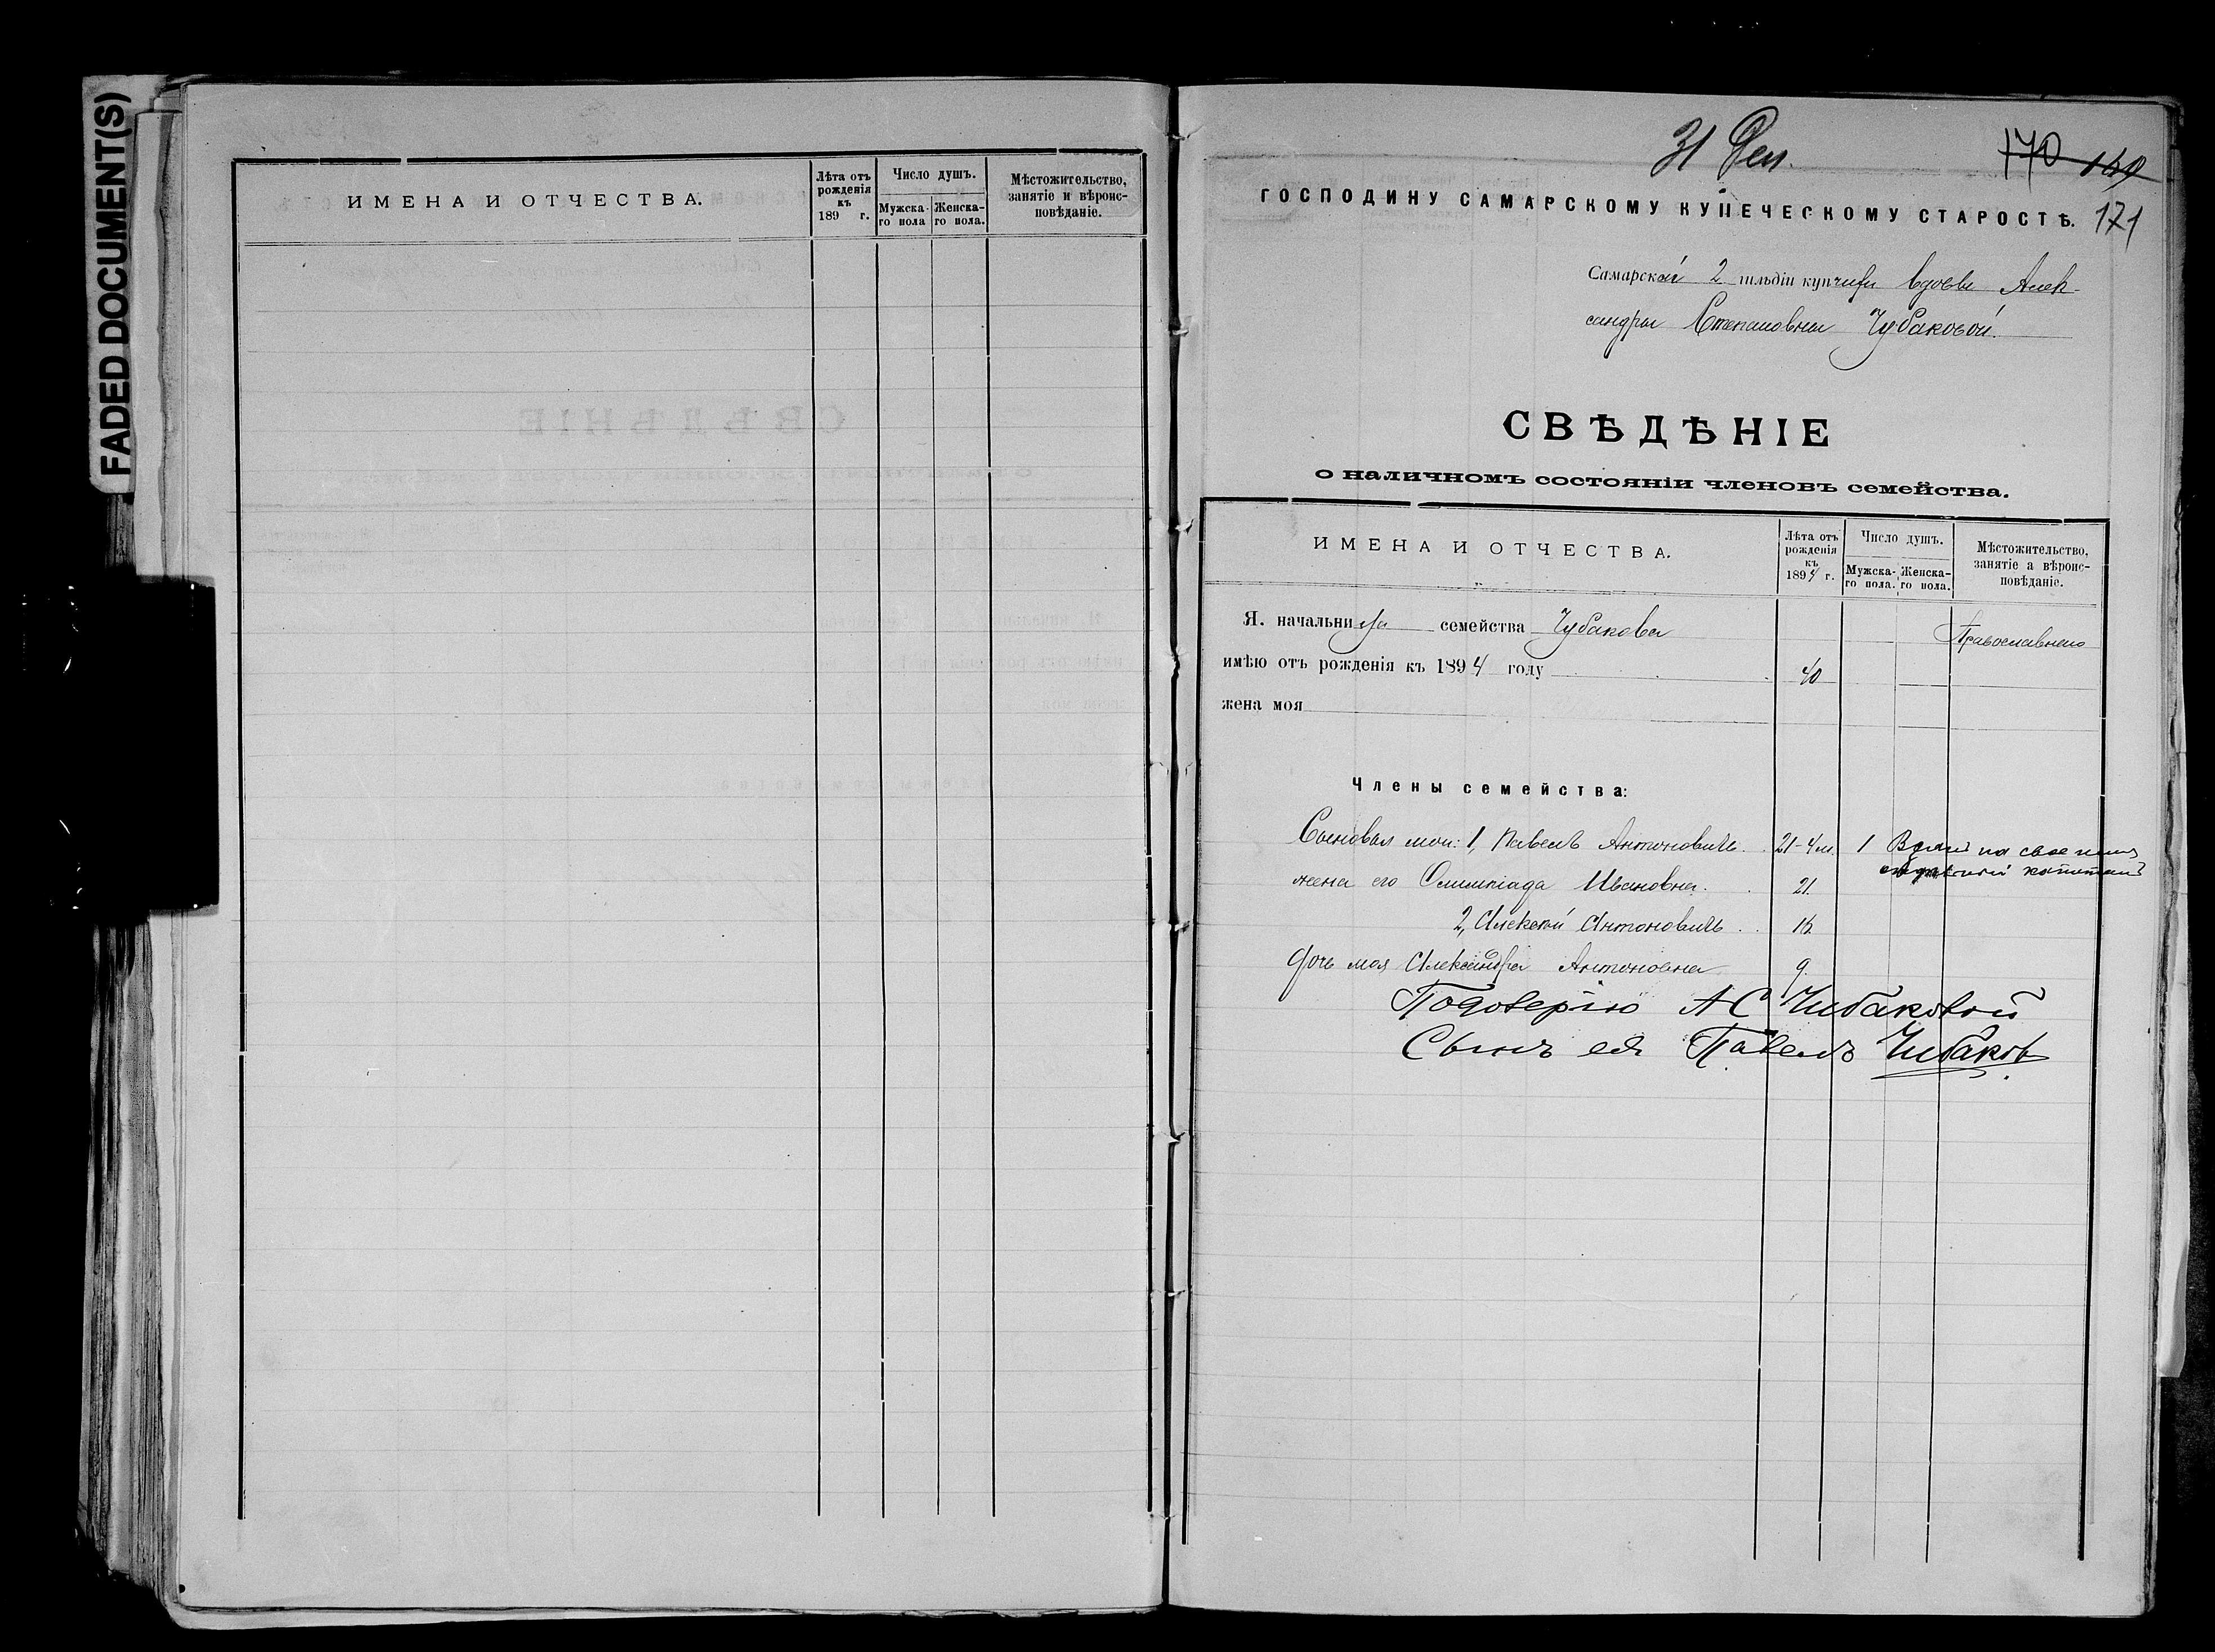 FADED DOCUMENT(S)
ИМЕНА И ОТЧЕСТВА.
Лѣта отъ рожденія къ 189 г.
Число душъ.
Мужскаго пола
Женскаго пола.
Мѣстожительство, занятіе и вѣроисповѣданіе.
31 Дек.
170 169
ГОСПОДИНУ САМАРСКОМУ КУПЕЧЕСКОМУ СТАРОСТѢ. 171
Самарской 2 гильдіи купчихи вдовы Алек-
сандры Степановны Чубаковой.
СВѢДѢНІЕ
о наличномъ состояніи членовъ семейства.
ИМЕНА И ОТЧЕСТВА.
Лѣта отъ рожденія къ 1894 г.
Число душъ.
Мужска-го пола.
Женска-го пола.
Мѣстожительство, занятіе а вѣроис-повѣданіе.
Я. начальница семейства Чубакова
Православнаго
имѣю отъ рожденія къ 1894 году 40
жена моя
Члены семейства:
Сыновья мои: 1, Павелъ Антоновичъ 21-4 м. 1 на свое имя
жена его Олимпіада Ивановна. 21.
2, Алексѣй Антоновичъ 16
дочь моя Александра Антоновна 9.
По доверію А С Чибаковой
Сынъ ея Павелъ Чибаков